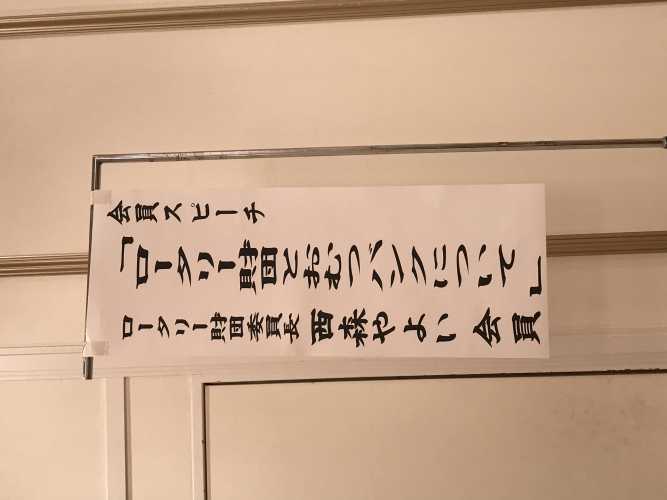 会員スピーチ
「ロータリー財団とおむつバンクについて」
ロータリー財団委員長 西森やよい 会員